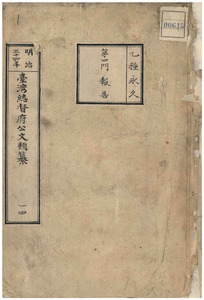 乙種永久
第四門 報告
明治
三十四年
臺灣總督府公文類纂
一四